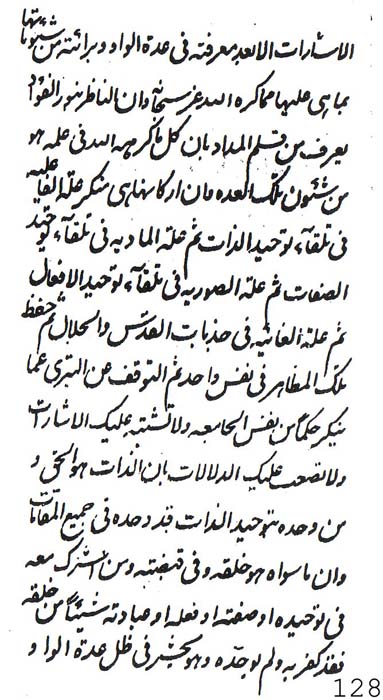 الاشارات الا بعد معرفته فى عدة الواو و برائته من شئوناتها
بما هى عليها مما كره الله عز سبحانه وان الناظر بنور الفؤاد
يعرف من قلم المداد بان كل ما كرهه الله فى علمه هو
من شئون تلك العده وان اركانها هى منكر علة الفاعليه
فى تلقاء توحيد الذات ثم علة الماديه فى تلقاء توحيد
الصفات ثم علة الصوريه فى تلقاء توحيد الافعال
ثم علة الغائيه فى جذبات القدس والجلال ثم حفظ
تلك المظاهر فى نفس واحد ثم التوقف عن التبرى عما
ينكر حكماً من نفس الجامعه ولا تشتبه عليك الاشارات
ولا تصعب عليك الدلالات بان الذات هو الحق و
من وحده بتوحيد الذات قد وحده فى جميع المقامات
وان ما سواه هو خلقه وفى قبضته ومن اشرك معه
فى توحيده او صفته او فعله او عبادته شيئاً من خلقه
فقد كفر به ولم يوحده وهو يحشر فى ظل عدة الواو
128